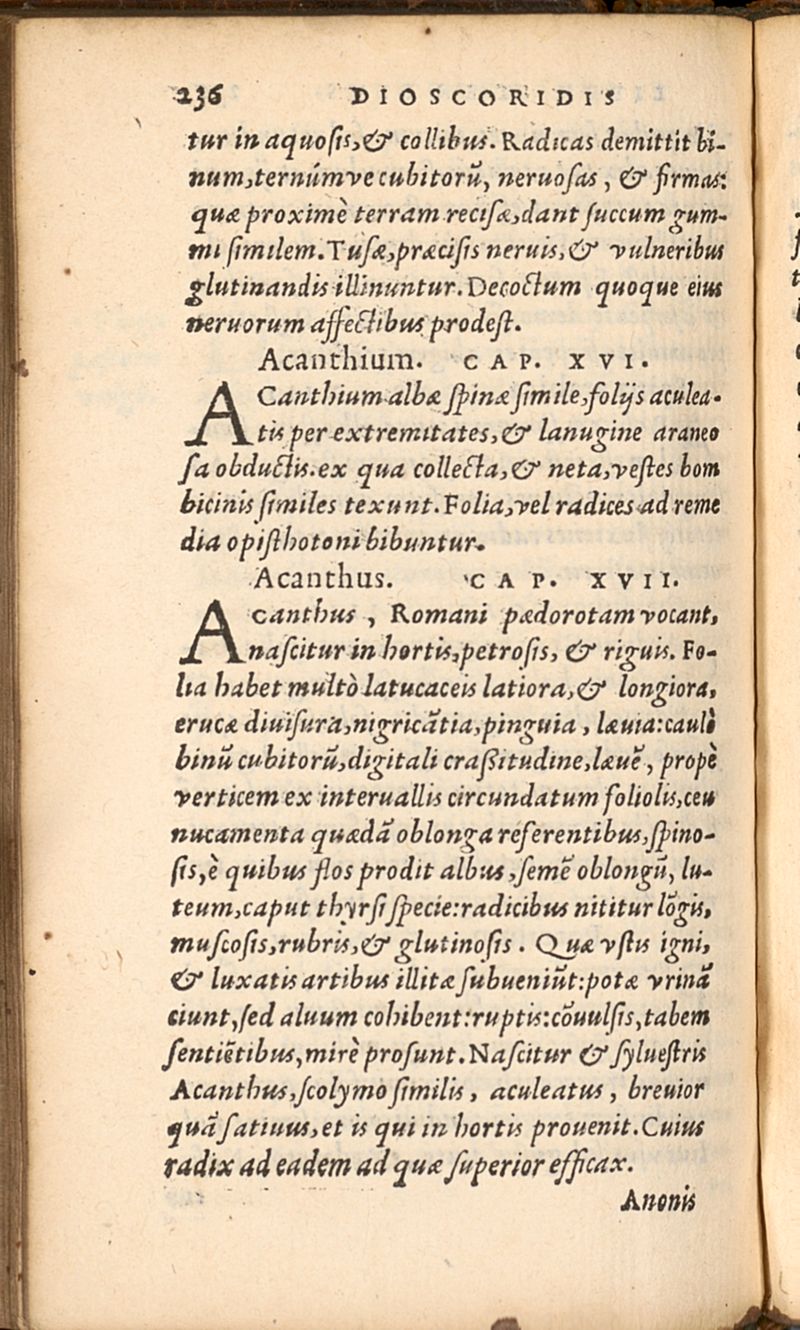 236 DIOSCORIDIS
tur in aquosis, & collibus. Radicas demittit bi-
num, ternúmve cubitorũ, neruosas, & firmas:
quæ proximè terram recisæ, dant succum gum-
mi similem. Tusæ, præcisis neruis, & vulneribus
glutinandis illinuntur. Decoctum quoque eius
neruorum affectibus prodest.
Acanthium. CAP. XVI.
ACanthium albæ spinæ simile, folijs aculea-
tis per extremitates, & lanugine araneo
sa obductis. ex qua collecta, & neta, vestes bom
bicinis similes texunt. Folia, vel radices ad reme
dia opisthotoni bibuntur.
Acanthus. CAP. XVII.
Acanthus, Romani pædorotam vocant,
nascitur in hortis, petrosis, & riguis. Fo-
lia habet multò latucaceis latiora, & longiora,
erucæ diuisura, nigricãtia, pinguia, læuia: caulẽ
binũ cubitorũ, digitali crassitudine, læuẽ, propè
verticem ex interuallis circundatum foliolis, ceu
nucamenta quædã oblonga referentibus, spino-
sis, è quibus flos prodit albus, semẽ oblongũ, lu-
teum, caput thyrsi specie: radicibus nititur lõgis,
muscosis, rubris, & glutinosis. Quæ vstis igni,
& luxatis artibus illitæ subueniũt: potæ vrinã
ciunt, sed aluum cohibent: ruptis: cõuulsis, tabem
sentiẽtibus, mirè prosunt. Nascitur & syluestris
Acanthus, scolymo similis, aculeatus, breuior
quã satiuus, et is qui in hortis prouenit. Cuius
radix ad eadem ad quæ superior efficax.
Anonis